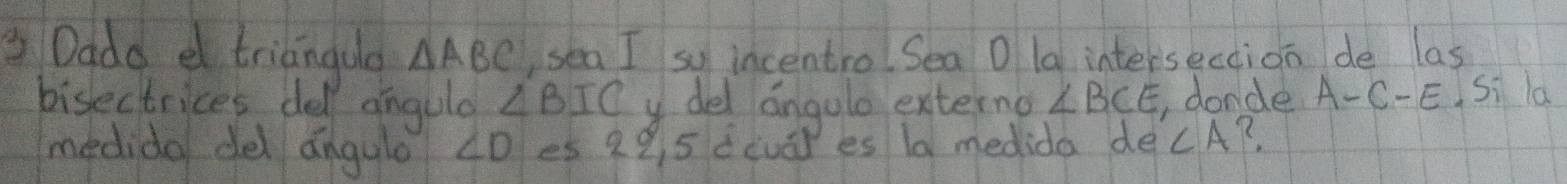 3 Dado el triángulo ΔABC, sea I su incentro. Sea D la intersección de las
bisectrices del ángulo ∠BIC y del ángulo externo ∠BCE, donde A-C-E. Si la
medida del ángulo ∠D es 22,5 ¿cuál es la medida de ∠A?.